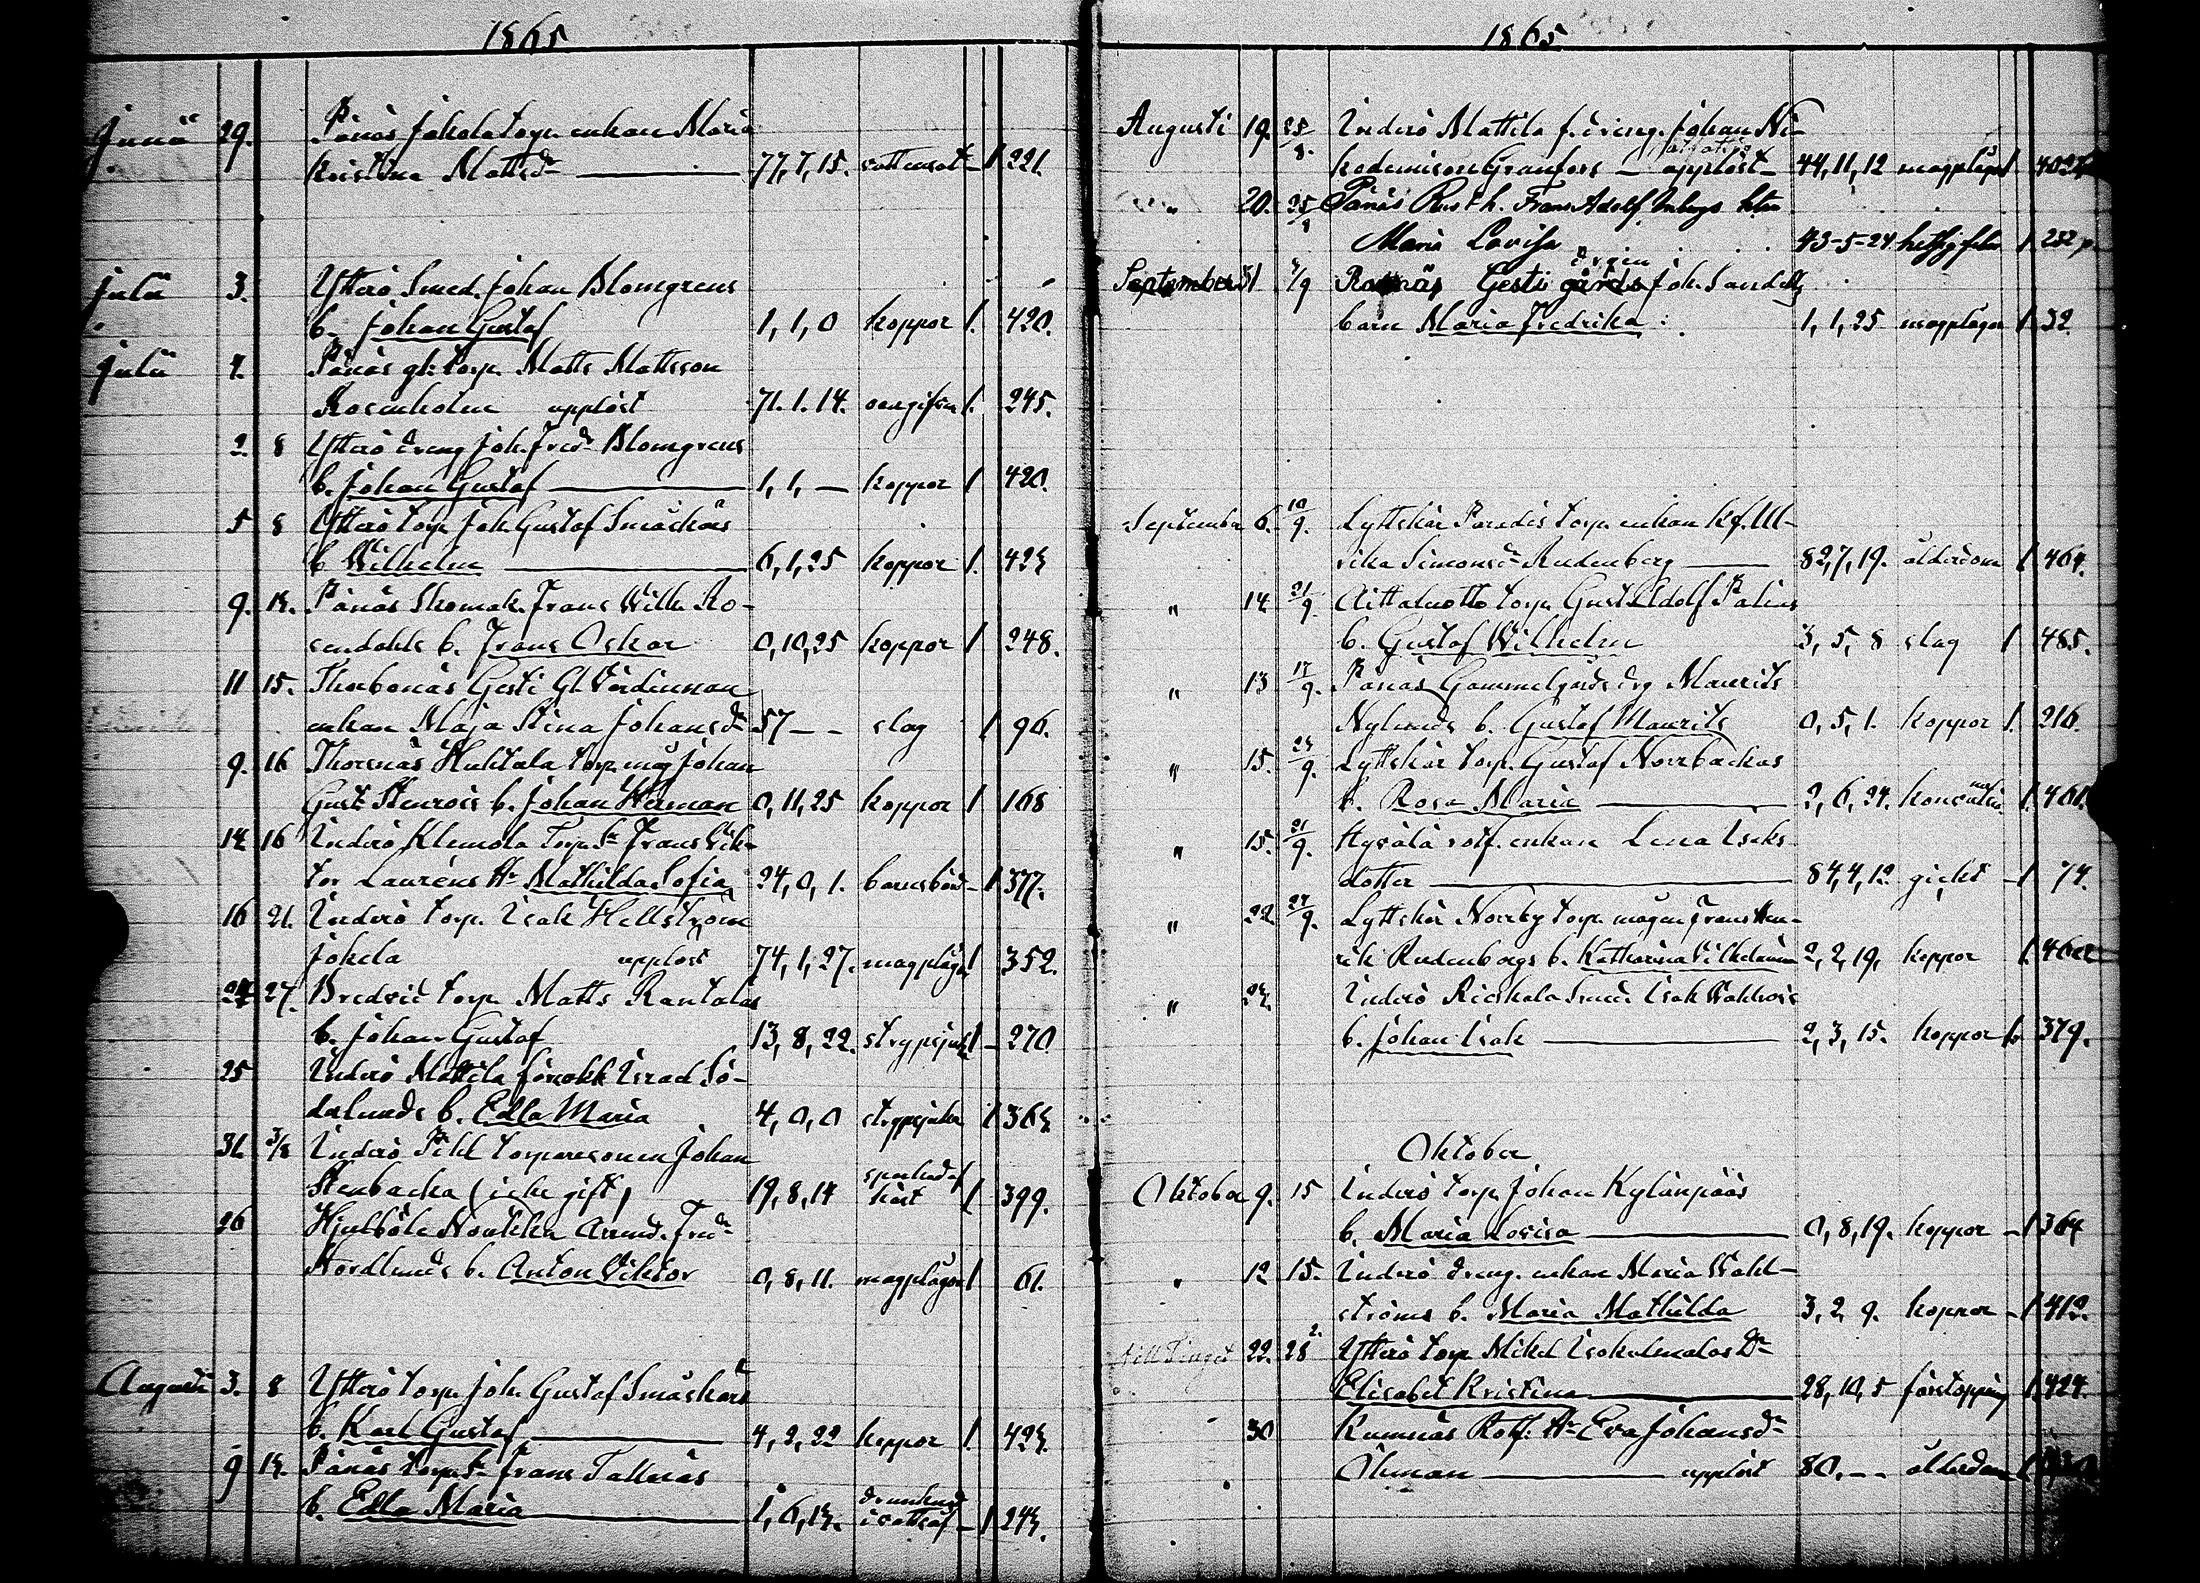 1865
Junii 29. Pänäs Jokela torp. enkan Maria
Kristina Mattsdr 77, 7, 15. vattensot 1 221.
Julii 3. Ytterö Smed. Johan Blomgrens
b. Johan Gustaf 1, 1, 0 koppor 1. 420.
Julii 4. Pänäs gl. torp. Matts Mattsson
Rosenholm upplöst 71. 1. 14. 1. 245.
2. 8 Ytterö dreng Joh. Fredr Blomgrens
b. Johan Gustaf 1, 1, — koppor 1 420.
5 8 Ytterö torp. Joh. Gustaf Småskärs
b Wilhelm 0, 1, 25 koppor 1. 423
9. 14. Pänäs Skomak. Frans Wilh. Ro-
sendahls b. Frans Oskar 0, 10, 25 koppor 1. 248.
11 15. Thorbonäs Gesti Gl.
enkan Maja Stina Johansdr 57 - - slag 1 96.
9. 16 Thorsnäs Huhtala torp. måg Johan
Gust. Stenrois b. Johan Herman 0, 11, 25 koppor 1 168
14 16 Inderö Klemola torp. Sn Frans Wik-
tor Lauréns Hu Mathilda Sofia 24, 0, 1. barnsbörd 1 377.
16 21. Inderö torp. Isak Hellström
Jokela upplöst 74, 1, 27. magplågor 1 352.
24 27. Bredvid torp. Matts Rantalas
b. Johan Gustaf 13, 8, 22. strypsjuk 1 270
25 Inderö Mattila Israel Sö-
derlunds b. Edla Maria 4, 0, 0 strypsjuka 1 363
31. 3/8 Inderö Pihl torparesonen Johan
Stenbacka (icke gift) 19, 8, 14 sparkad af häst 1 399.
26 Hjulböle Noukka Arend. Fredr
Nordlunds b. Anton Viktor 0, 8, 11. magplågor 1 61.
Augusti 3. 8 Ytterö torp. Joh. Gustaf Småskärs
b. Karl Gustaf 4, 2, 22 koppor 1. 423.
9 14. Pänäs torp. Sn Frans Tallnäs
b. Edla Maria 1, 6, 14. drunknad i 1 243.
1865
Augusti 19. 25/8. Inderö Mattila f. dreng. Johan Ni-
kodemison Granfors — upplöst 44, 11, 12 magplågor 1. 402
" 20. 25/8 Pänäs Rusth. Frans Adolf hu
Maria Lovisa 43-5-24 hetsig feber 1. 232
September 1 3/9 Gesti gårds drgen Joh. Sandells
barn Maria Fredrika 1, 1, 25 magplågor 1 32.
September 6. 10/9. Lyttskär Paradis torp. enkan Kf. Ul-
rika Simonsdr Rudenberg 82, 7, 19. ålderdom 1 464.
" 14 21/9. Aittaluotto torp. Gust. Adolf Palins
b. Gustaf Wilhelm 3, 5, 8 slag 1 485.
" 13 17/9. Pänäs Gammelgårds drg Maurits
Nylunds b. Gustaf Maurits 0, 5, 1. koppor 1. 216.
" 15. 24/9. Lyttskär torp. Gustaf Norrbackas
b. Rosa Maria 2, 6, 24. 1. 461
" 15. 21/9. Hyvälä rotf. enkan Lena Isaks
dotter 84, 4, 12 gickt 1 74.
" 22 24/9. Lyttskär Norrby torp. mågen Frans Hen-
rik Rudenbergs b. Katharina Vilhelmina 2, 2, 19, koppor 1. 462
" 24. Inderö Rieskala Smed. Isak Wahlrois
b. Johan Isak 2, 3, 15. koppor 1 379.
Oktober
Oktober 9. 15 Inderö torp. Johan Kylänpääs
b. Maria Lovisa 0, 8, 19. koppor 1 364
" 12 15. Inderö dreng. enkan Maria Wahl-
ströms b. Maria Mathilda 3, 2, 9. koppor 1 412.
till Tinget 22. 28 Ytterö torp Mikel Dr
Elisabet Kristina 28, 10, 5 förstoppning 1. 424.
30 Kumnäs Rotf. Hu Eva Johansdr
Öhman upplöst 80. - - ålderdom 1